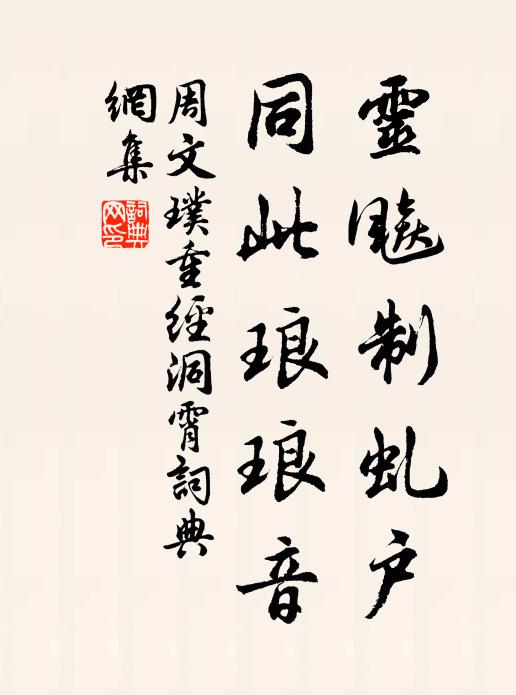 靈飈制虬户
同此琅琅音
周文璞重經洞霄詞典
網集
詞典網